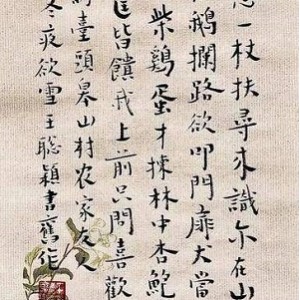 一杖扶尋來識亦在山
鵝攔路欲叩門扉犬當
柴鷄蛋才揀林中杏鮑
筐皆饋我上前只問喜歡
臺頭皋山村农家人
冬夜欲雪王聡穎書舊作